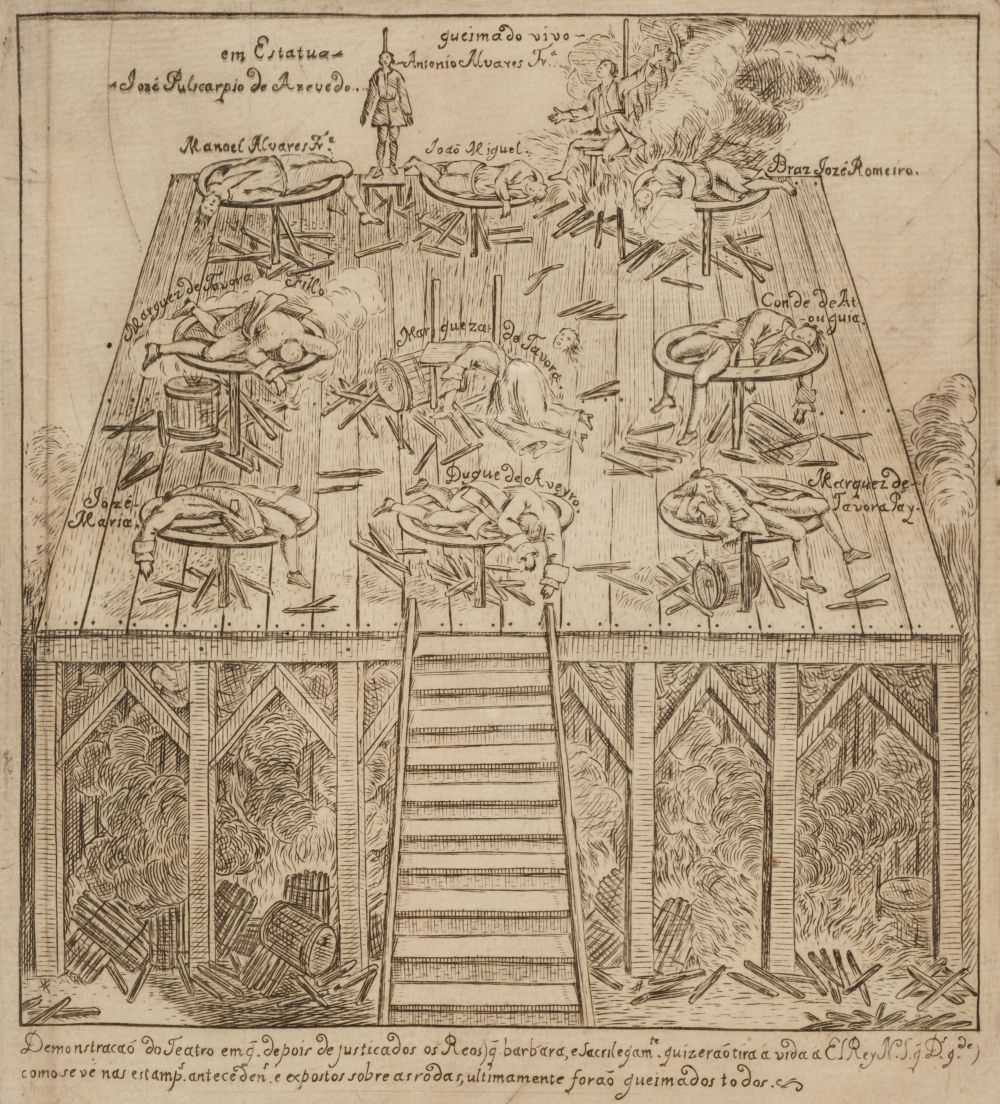 em Estatua
Jozé Pulscarpio de Azevedo.
queimado vivo
Antonio Alvares Fr.ª
Manoel Alvares Fr.ª
Joaõ Miguel.
Braz Jozé Romeiro.
Marquez de Tavora Filho
Marqueza de Tavora.
Conde de At
ouguia.
Jozé
Maria.
Duque de Aveyro.
Marquez de
Tavora Pay.
Demonstracaõ do Teatro em q̃. depois de justicados os Reos, q̃ barbara, e Sacrilegam.te quizeraõ tira a vida a El Rey N. S. q̃ D.s g.de,
como se vé nas estamp.s anteceden.s e expostos sobre as rodas, ultimamente foraõ queimados todos.